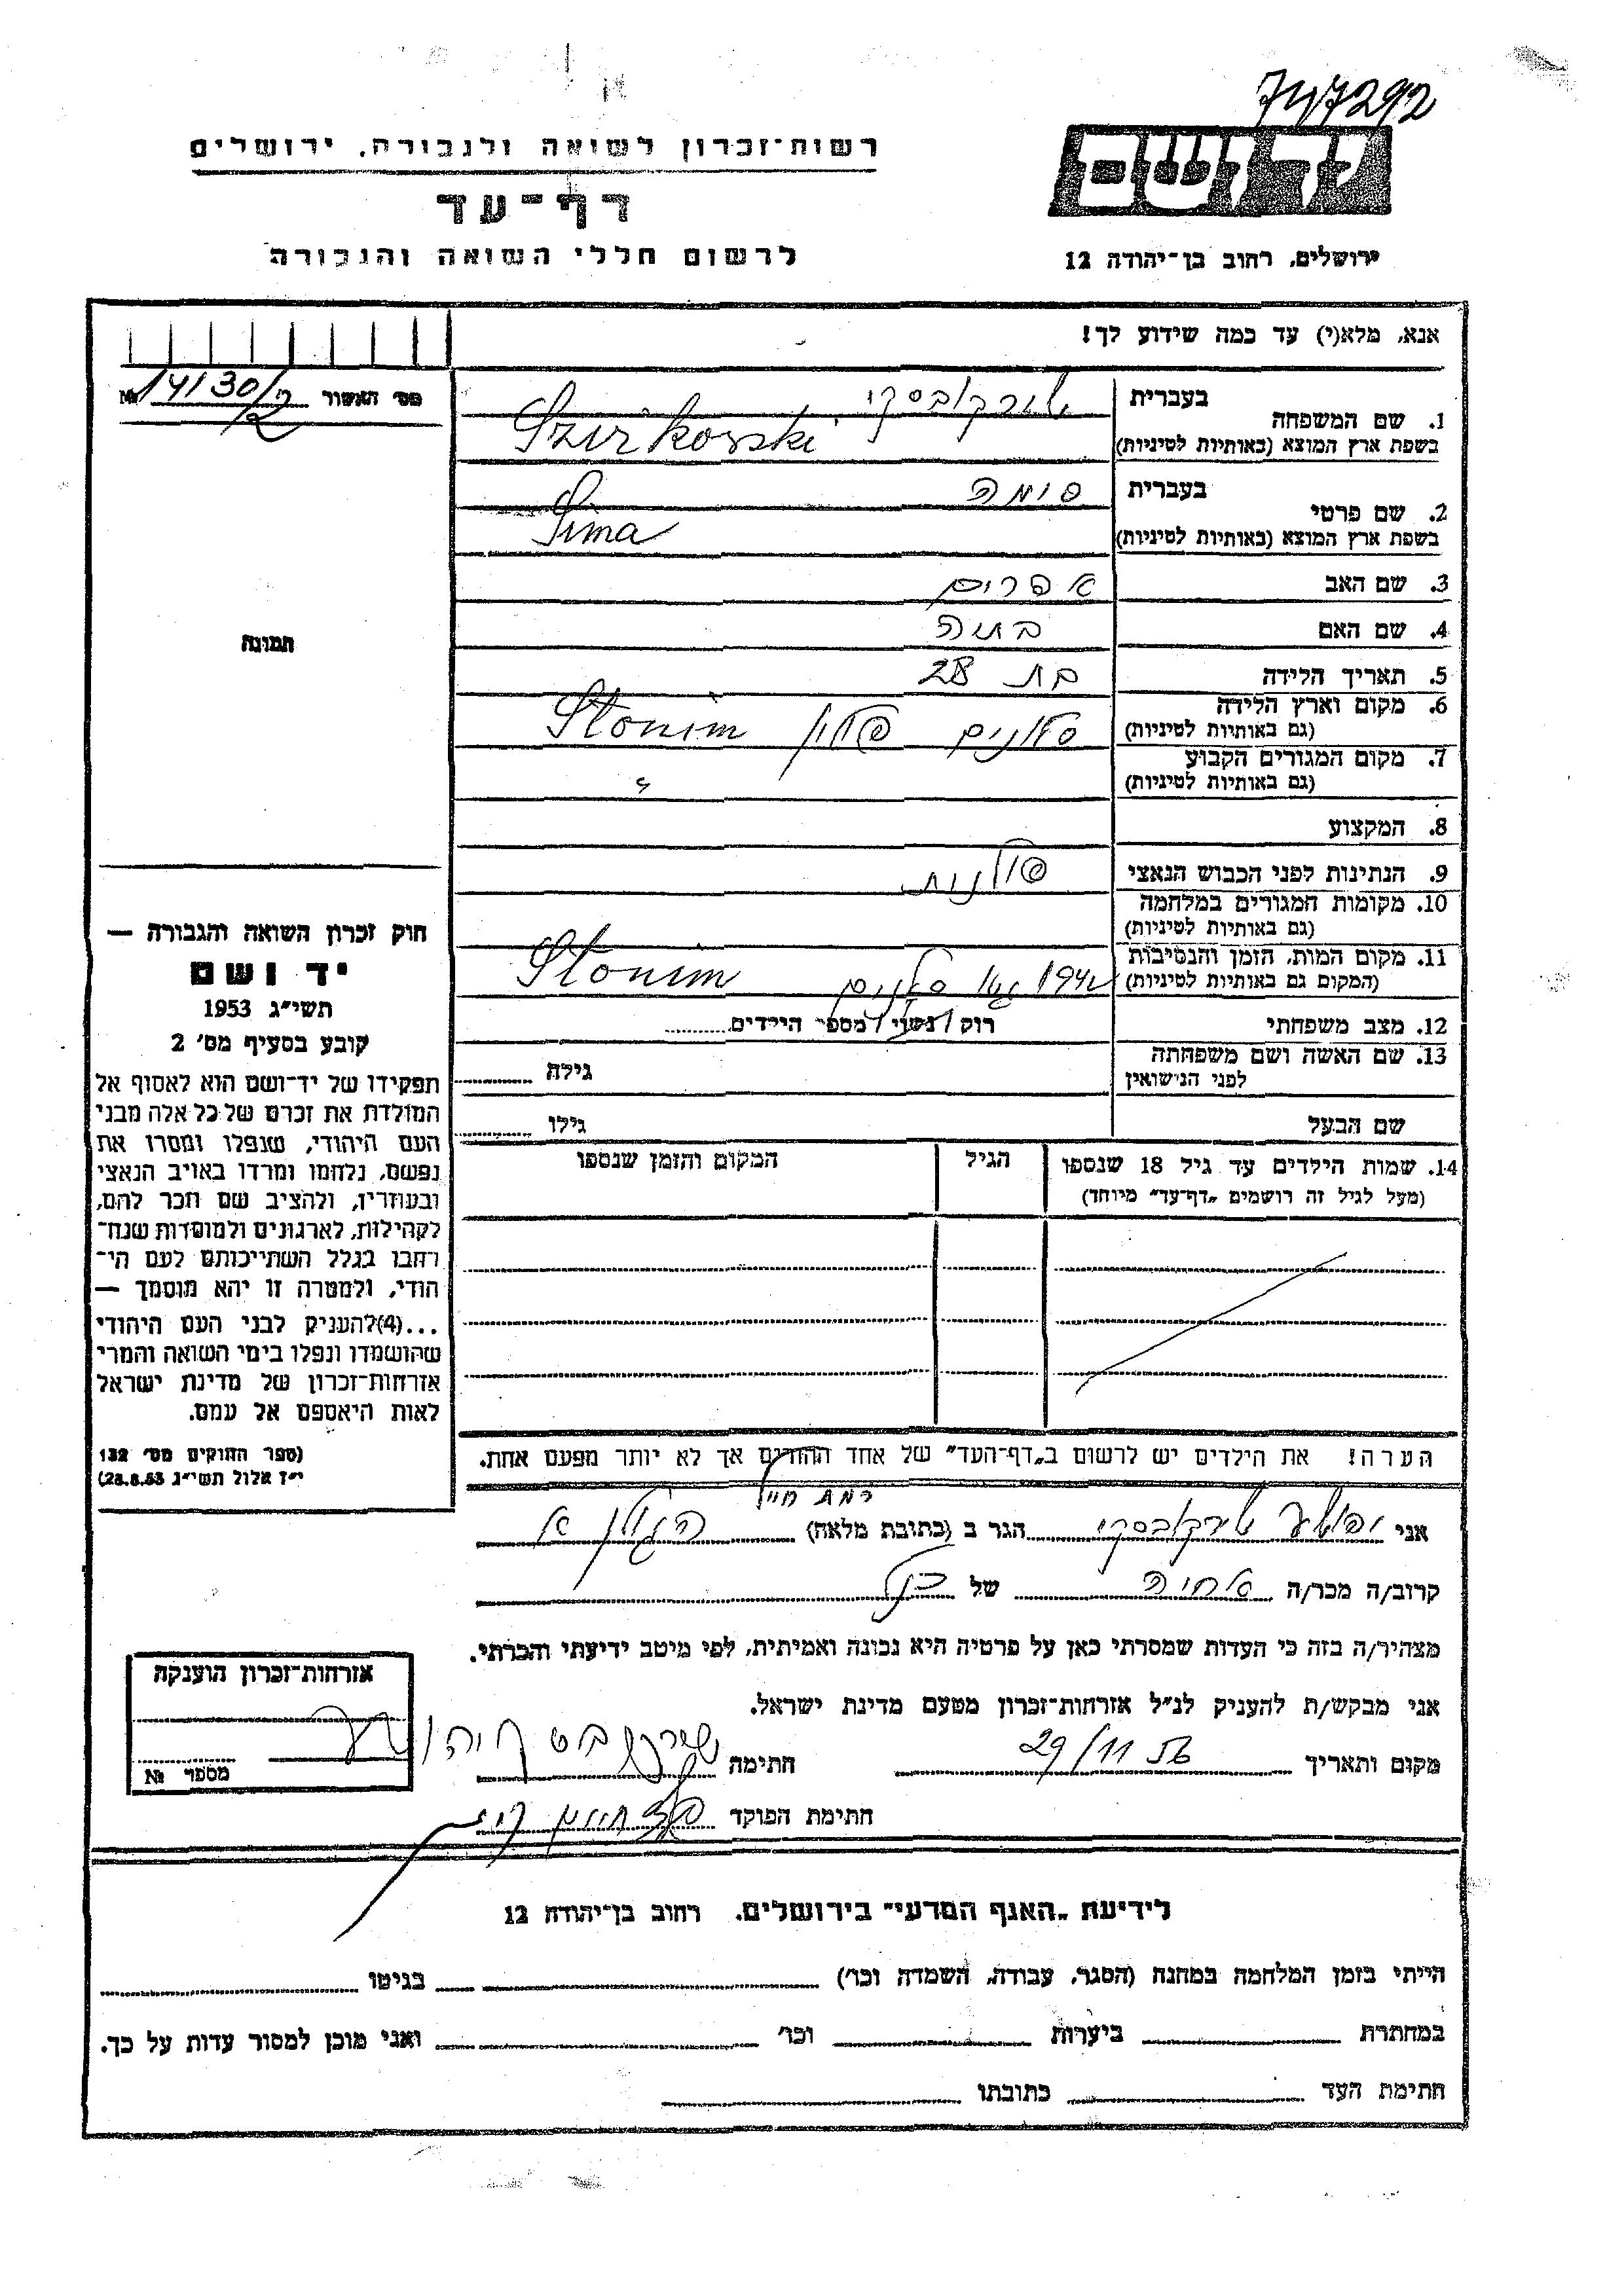 747292
יד ושם
רשות־זכרון לשואה ולגבורה, ירושלים
דף־עד
לרשום חללי השואה והגבורה
ירושלים, רחוב בן־יהודה 12
אנא, מלא(י) עד כמה שידוע לך!
מס׳ האשור № 14130/2
1. שם המשפחה
בעברית שירקובסקי
בשפת ארץ המוצא (באותיות לטיניות) Szirkowski
2. שם פרטי
בעברית סימה
בשפת ארץ המוצא (באותיות לטיניות) Sima
3. שם האב אפרים
4. שם האם בתיה
5. תאריך הלידה בת 28
6. מקום וארץ הלידה
(גם באותיות לטיניות) סלונים פולין Słonim
7. מקום המגורים הקבוע
(גם באותיות לטיניות) "
8. המקצוע
9. הנתינות לפני הכבוש הנאצי פולנית
10. מקומות המגורים במלחמה
(גם באותיות לטיניות)
11. מקום המות, הזמן והנסיבות
(המקום גם באותיות לטיניות) 1942 סלונים Słonim
12. מצב משפחתי רוק/נשוי/מספר הילדים
13. שם האשה ושם משפחתה
לפני הנישואין
גילה
שם הבעל גילו
14. שמות הילדים עד גיל 18 שנספו הגיל המקום והזמן שנספו
(מעל לגיל זה רושמים „דף־עד״ מיוחד)
תמונה
חוק זכרון השואה והגבורה —
יד ושם
תשי״ג 1953
קובע בסעיף מס׳ 2
תפקידו של יד־ושם הוא לאסוף אל
המולדת את זכרם של כל אלה מבני
העם היהודי, שנפלו ומסרו את
נפשם, נלחמו ומרדו באויב הנאצי
ובעוזריו, ולהציב שם וזכר להם,
לקהילות, לארגונים ולמוסדות שנח־
רבו בגלל השתייכותם לעם הי־
הודי, ולמטרה זו יהא מוסמך —
...(4)להעניק לבני העם היהודי
שהושמדו ונפלו בימי השואה והמרי
אזרחות־זכרון של מדינת ישראל
לאות היאספם אל עמם.
(ספר החוקים מס׳ 132
י״ז אלול תשי״ג 28.8.53)
הערה! את הילדים יש לרשום ב„דף־העד״ של אחד ההורים אך לא יותר מפעם אחת.
רמת חיל
אני יהושע שירקובסקי הגר ב (כתובת מלאה)
קרוב/ה מכר/ה אחיה של הנ״ל
מצהיר/ה בזה כי העדות שמסרתי כאן על פרטיה היא נכונה ואמיתית, לפי מיטב ידיעתי והכרתי.
אני מבקש/ת להעניק לנ״ל אזרחות־זכרון מטעם מדינת ישראל.
מקום ותאריך 29/11 56 חתימה שירקובסקי יהושע
חתימת הפוקד
אזרחות־זכרון הוענקה
מספר №
לידיעת „האגף המדעי״ בירושלים, רחוב בן־יהודה 12
הייתי בזמן המלחמה במחנה (הסגר, עבודה, השמדה וכו׳) בגיטו
במחתרת ביערות וכו׳ ואני מוכן למסור עדות על כך.
חתימת העד כתובתו